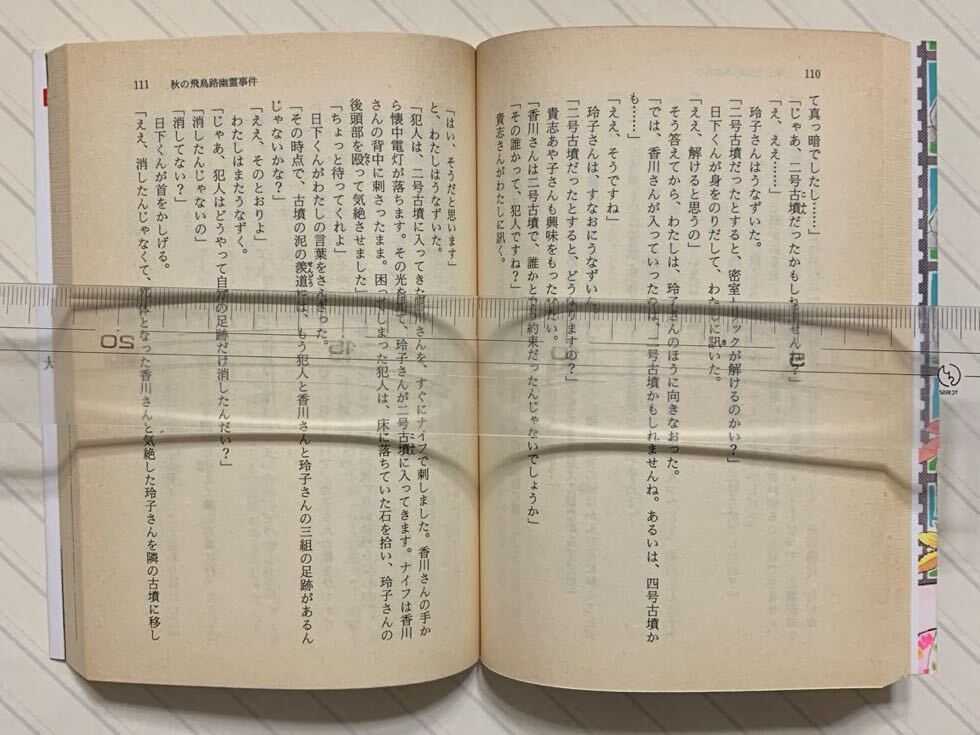 110
て真っ暗でしたし……」
「じゃあ、二号古墳だったかもしれませんね？」
「え、ええ……」
玲子さんはうなずいた。
「二号古墳だったとすると、密室トリックが解けるのかい？」
日下くんが身をのりだして、わたしに訊いた。
「ええ、解けると思うの」
そう答えてから、わたしは、玲子さんのほうに向きなおった。
「では、香川さんが入っていったのは、二号古墳かもしれませんね。あるいは、四号古墳か
も……」
「ええ、そうですね」
玲子さんは、すなおにうなずいた。
「二号古墳だったとすると、どうなりますの？」
貴志あや子さんも興味をもったみたい。
「香川さんは二号古墳で、誰かとお約束だったんじゃないでしょうか」
「その誰かって、犯人ですね？」
貴志さんがわたしに訊く。
111 秋の飛鳥路幽霊事件
「はい、そうだと思います」
と、わたしはうなずいた。
「犯人は、二号古墳に入ってきた香川さんを、すぐにナイフで刺しました。香川さんの手か
ら懐中電灯が落ちます。その光を見て、玲子さんが二号古墳に入ってきます。ナイフは香川
さんの背中に刺さったまま。困ってしまった犯人は、床に落ちていた石を拾い、玲子さんの
後頭部を殴って気絶させました」
「ちょっと待ってくれよ」
日下くんがわたしの言葉をさえぎった。
「その時点で、古墳の泥の羨道には、もう犯人と香川さんと玲子さんの三組の足跡があるん
じゃないかな？」
「ええ、そのとおりよ」
わたしはまたうなずく。
「じゃあ、犯人はどうやって自分の足跡だけ消したんだい？」
「消したんじゃないの」
「消してない？」
日下くんが首をかしげる。
「ええ、消したんじゃなくて、死体となった香川さんと気絶した玲子さんを隣の古墳に移し
20
15
5
大